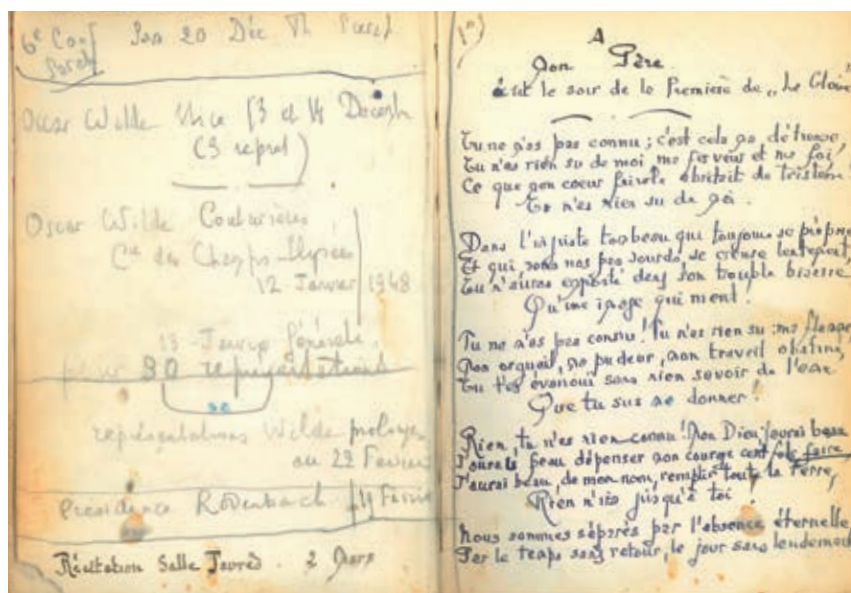 6e
San 20 Déc
Oscar Wilde Nice 13 et 14 Décemb
(3 repret)
Oscar Wilde Couturières
Cie des Champs-Elysées
12 Janvier 1948
13 Janvier Générale.
pour 30 représentations
30
représentations Wilde prolongé
au 22 Février
Présidence Rodenbach 14 Février
Récitation Salle 2 Mars
1°)
A
Mon Père
écrit le soir de la Première de „Le Cloître"
Tu ne m'as pas connu ; c'est cela ma détresse,
Tu n'as rien su de moi, ma ferveur et ma foi,
Ce que mon coeur abritait de tristesse
Tu n'as rien su de moi.
Dans l'injuste tombeau qui toujours se prépare
Et qui sous nos pas sourds, se creuse lentement,
Tu n'auras emporté dans ton trouble bizarre
Qu'une image qui ment.
Tu ne m'as pas connu ! Tu n'as rien su : ma flamme,
Mon orgueil, ma pudeur, mon travail obstiné,
Tu t'es évanoui sans rien savoir de l'âme
Que tu sus me donner !
Rien, tu n'as rien connu ! Mon Dieu j'aurai beau faire
J'aurai beau dépenser mon courage cent fois
J'aurai beau, de mon nom, remplir toute la terre,
Rien n'ira jusqu'à toi !
Nous sommes séparés par l'absence éternelle
Par le temps sans retour, le jour sans lendemain